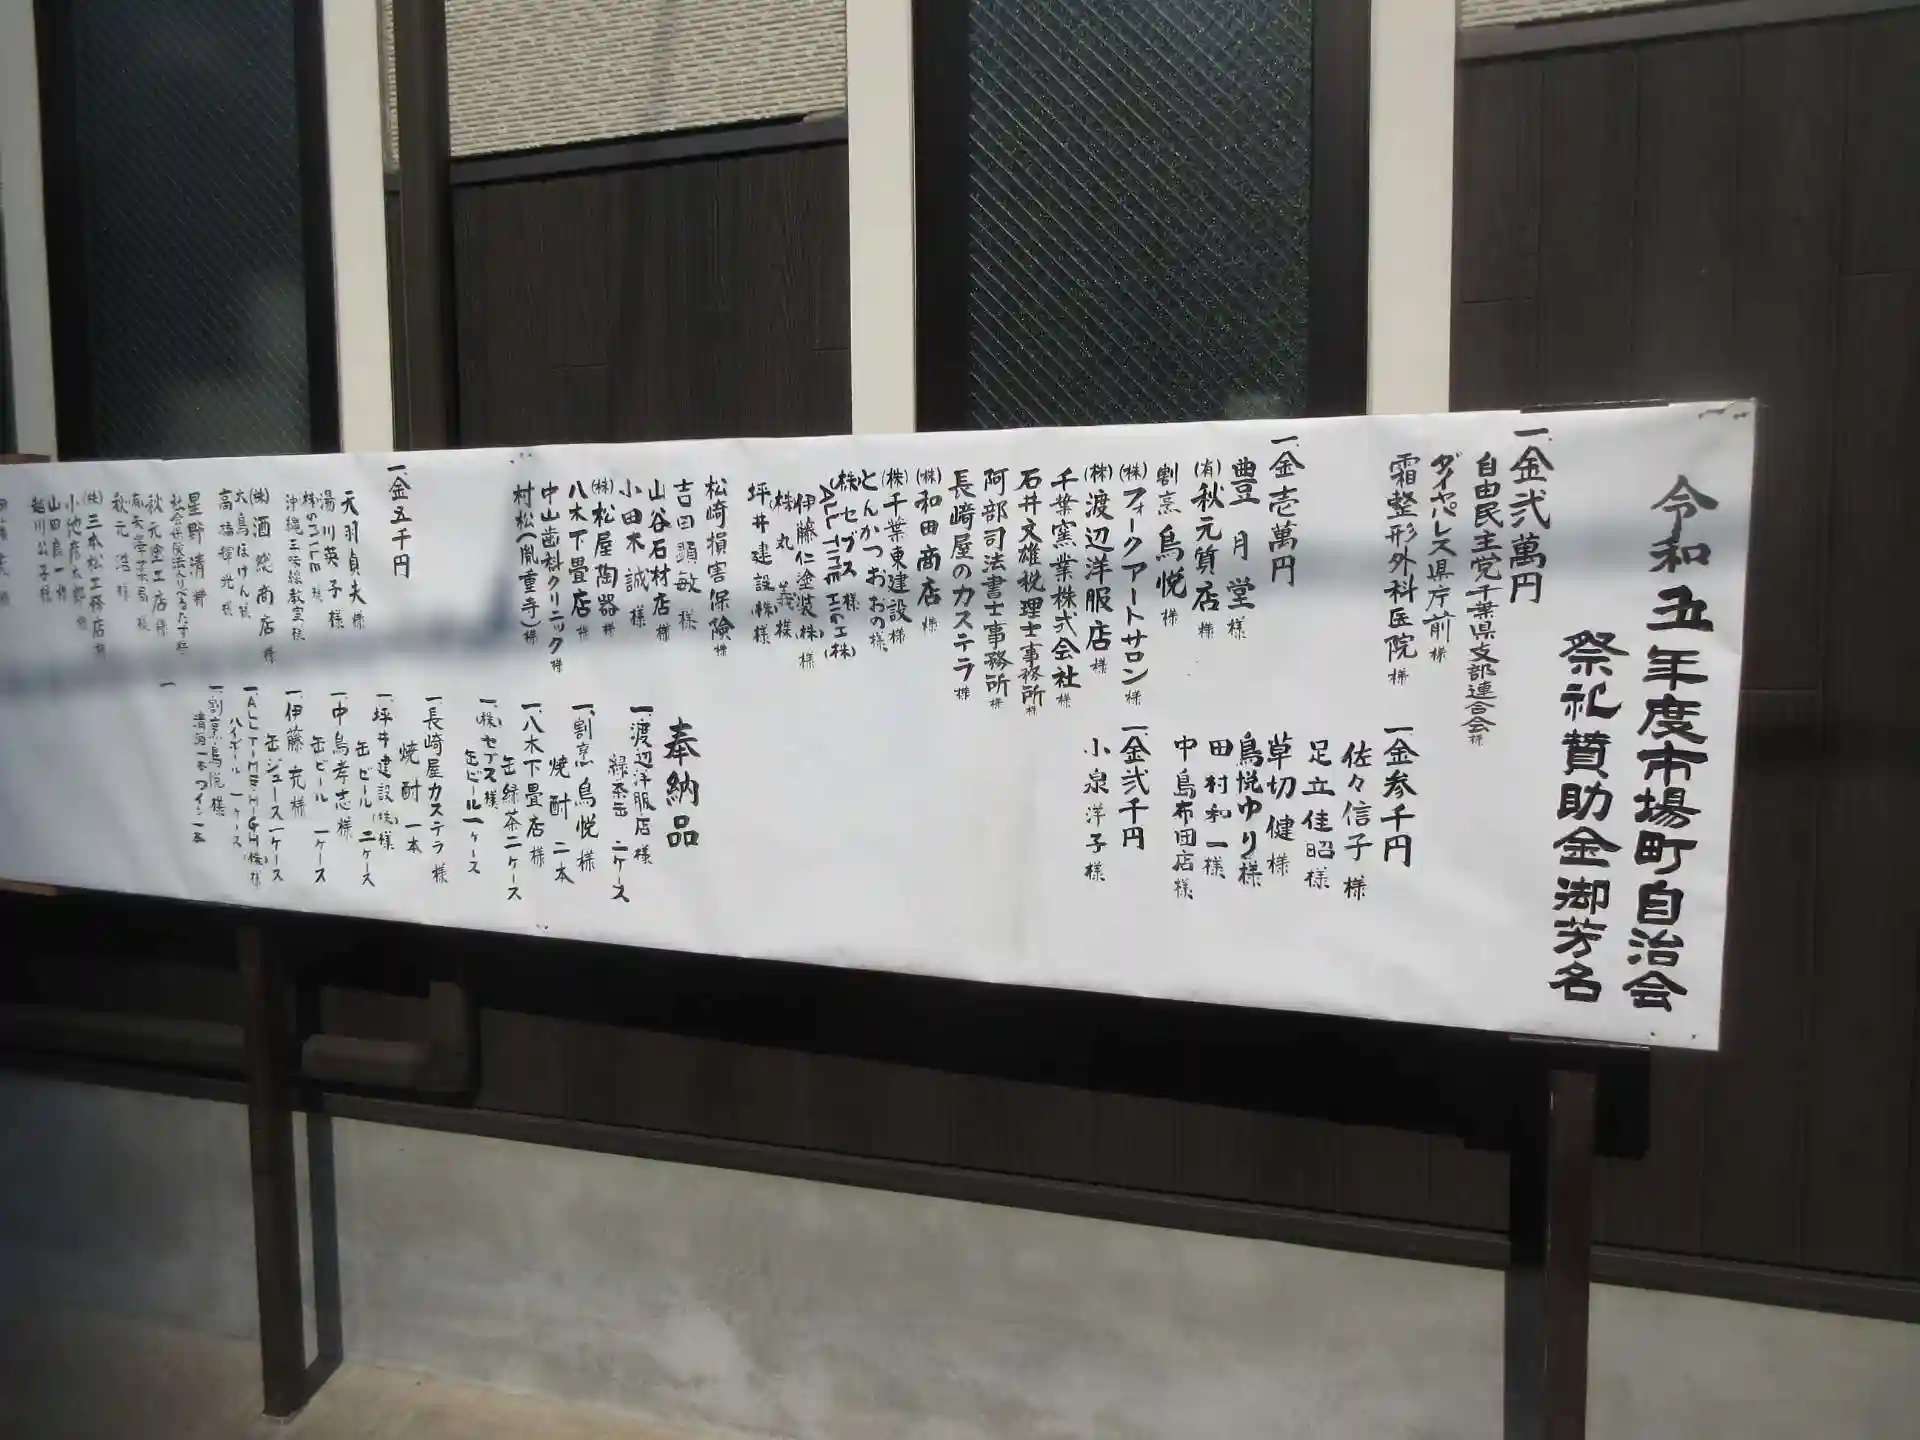 令和五年度市場町自治会
祭礼賛助金御芳名
一、金弐萬円
自由民主党千葉県支部連合会様
ダイヤパレス県庁前様
霜整形外科医院様
一、金壱萬円
豊月堂様
(有)秋元質店様
割烹鳥悦様
(株)フォークアートサロン様
(株)渡辺洋服店様
千葉窯業株式会社様
石井文雄税理士事務所様
阿部司法書士事務所様
長崎屋のカステラ様
(株)和田商店様
(株)千葉東建設様
とんかつおおの様
(株)セブス様
伊藤仁塗装(株)様
(株)丸義様
坪井建設(株)様
松崎損害保険様
吉田顕敏様
山谷石材店様
小田木誠様
(株)松屋陶器様
八木下畳店様
中山歯科クリニック様
村松(胤重寺)様
一、金五千円
天羽貞夫様
湯川英子様
沖縄三味線教室様
(株)酒悠商店様
大鳥ほけん様
高橋輝光様
星野清様
秋元塗工店様
秋元浩様
(株)三本松工務店様
小池彦太郎様
山田良一様
越川公子様
一、金参千円
佐々信子様
足立佳昭様
草切健様
鳥悦ゆり様
田村和一様
中島布団店様
一、金弐千円
小泉洋子様
奉納品
一、渡辺洋服店様
緑茶缶二ケース
一、割烹鳥悦様
焼酎二本
一、八木下畳店様
缶緑茶二ケース
一、(株)セブス様
缶ビール一ケース
一、長崎屋カステラ様
焼酎一本
一、坪井建設(株)様
缶ビール二ケース
一、中島孝志様
缶ビール一ケース
一、伊藤充様
缶ジュース一ケース
ハイボール一ケース
一、割烹鳥悦様